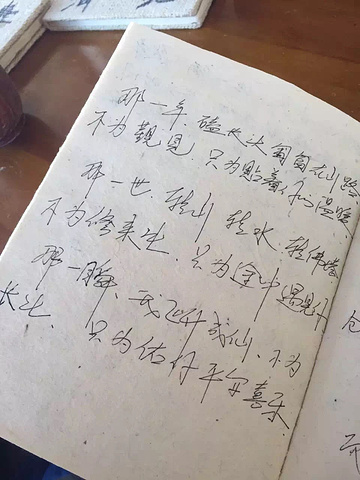 那一年，磕长头匍匐在山路
不为觐见，只为贴着你的温暖
那一世，转山转水转佛塔
不为修来生，只为途中遇见你
那一瞬，我飞升成仙，不为
长生，只为佑你平安喜乐